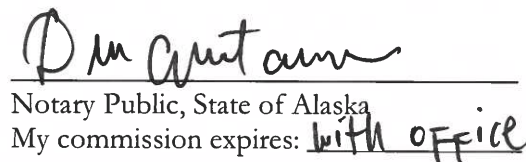 Notary Public, State of Alaska
My commission expires: with office